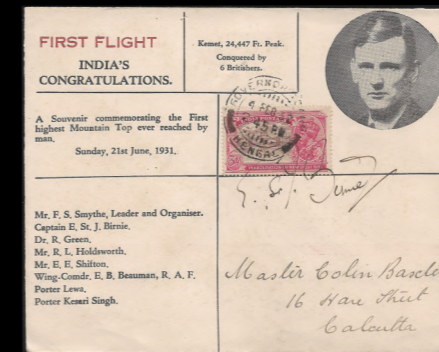 FIRST FLIGHT
INDIA'S
CONGRATULATIONS.
Kemet, 24,447 Ft. Peak.
Conquered by
6 Britishers.
A Souvenir commemorating the First
highest Mountain Top ever reached by
man.
Sunday, 21st June, 1931.
4 FEB
Mr. F. S. Smythe, Leader and Organiser.
Captain E. St. J. Birnie.
Dr. R. Green.
Mr. R. L. Holdsworth.
Mr. E. E. Shifton.
Wing-Comdr. E. B. Beauman, R. A. F.
Porter Lewa.
Porter Kesari Singh.
Master Colin
16 Hare Street
Calcutta